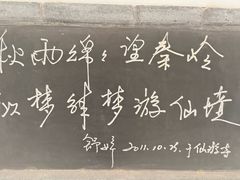 秋雨绵绵望秦岭
以梦绊梦游仙境
舒婷 2011.10.25.于仙游寺